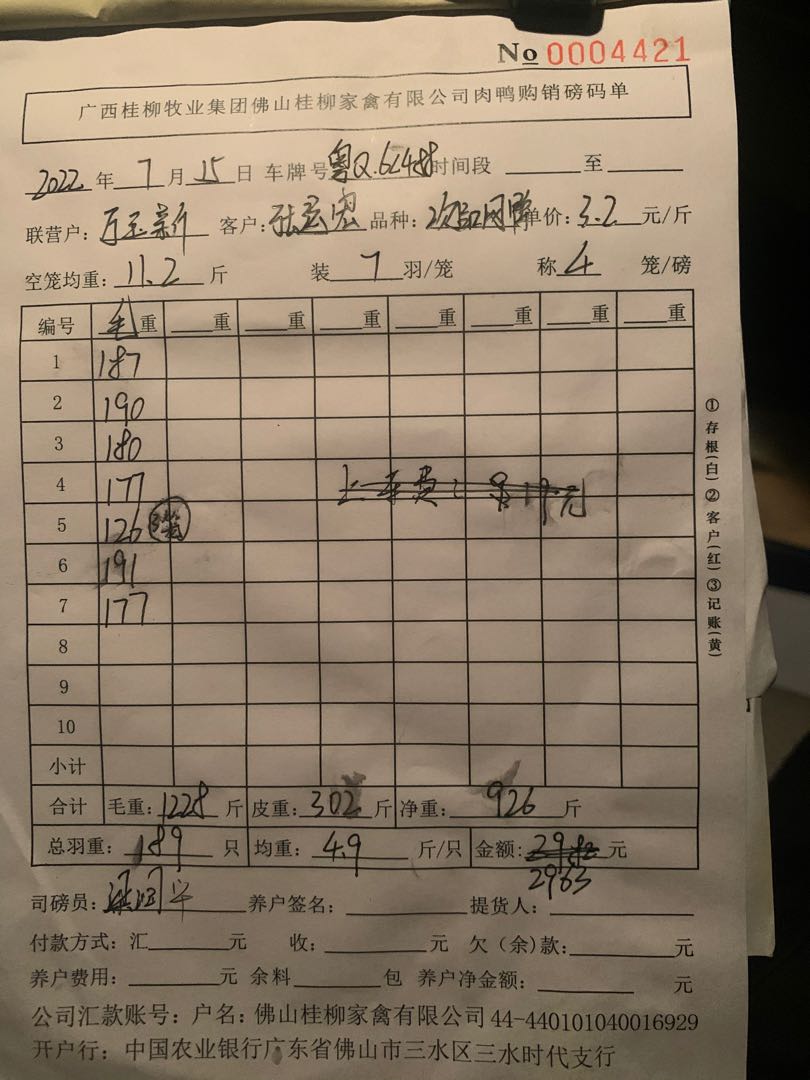 No 0004421
广西桂柳牧业集团佛山桂柳家禽有限公司肉鸭购销磅码单
2022 年 7 月 15 日 车牌号 粤Q.6L488 时间段 至
联营户: 客户: 张宏 品种: 次品肉鸭 单价: 3.2 元/斤
空笼均重: 11.2 斤 装 7 羽/笼 称 4 笼/磅
编号 毛重 重 重 重 重 重 重 重
1 187
2 190
3 180
4 177 上车费: 元
5 126 3笼
6 191
7 177
8
9
10
小计
合计 毛重: 1228 斤 皮重: 302 斤 净重: 926 斤
总羽重: 189 只 均重: 4.9 斤/只 金额: 元
2963
司磅员: 养户签名: 提货人:
付款方式: 汇 元 收: 元 欠(余)款: 元
养户费用: 元 余料 包 养户净金额: 元
公司汇款账号: 户名: 佛山桂柳家禽有限公司 44-440101040016929
开户行: 中国农业银行广东省佛山市三水区三水时代支行
①存根(白)②客户(红)③记账(黄)